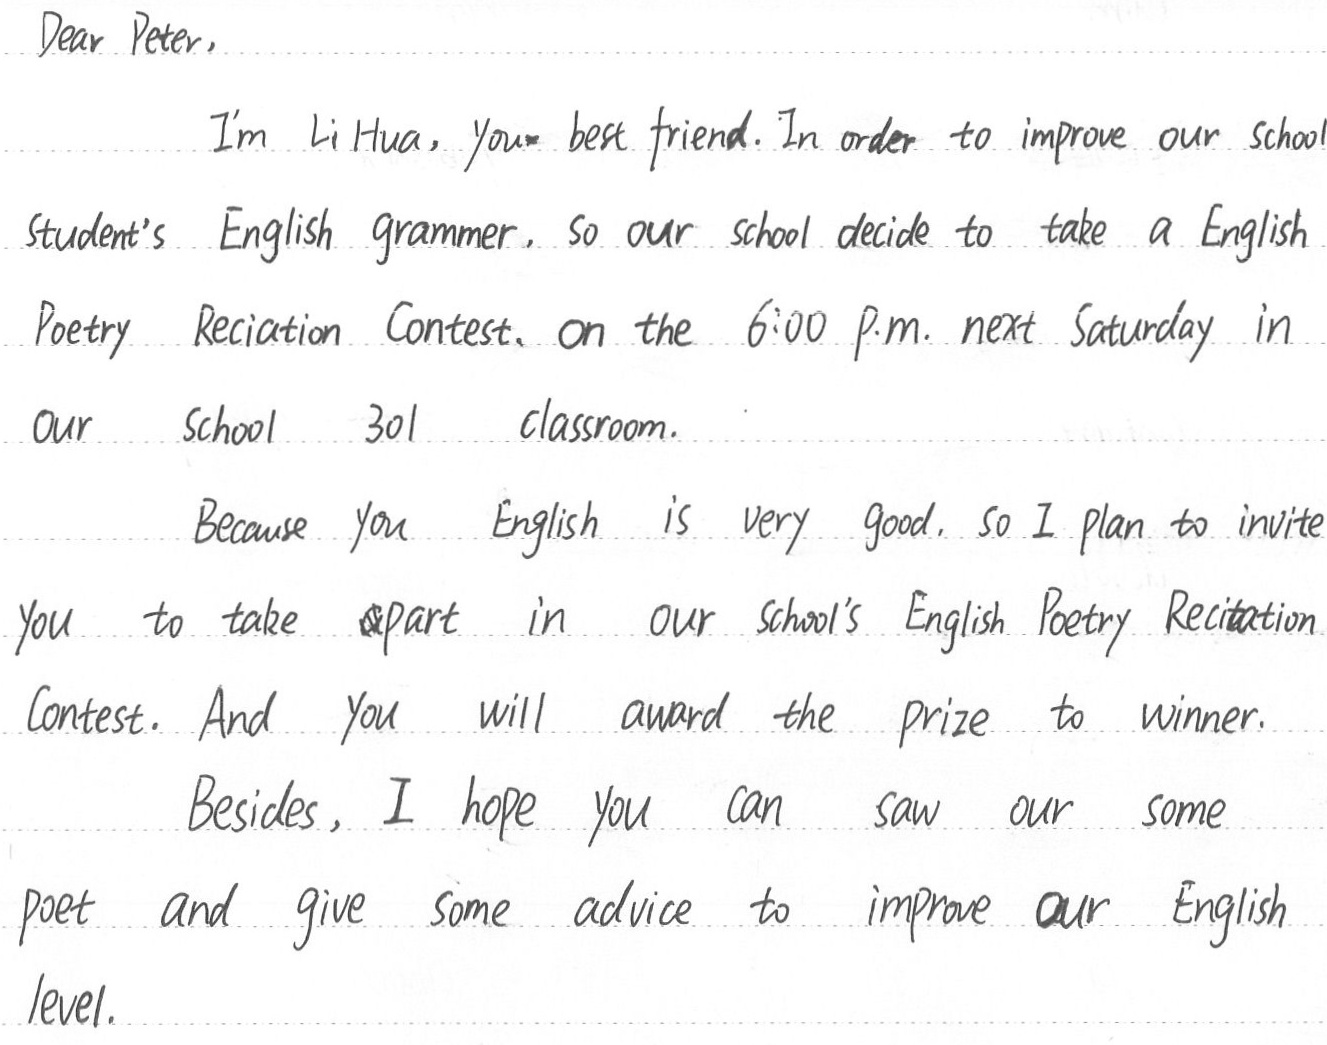 Dear Peter,
I'm Li Hua, your best friend. In order to improve our school
student's English grammer. so our school decide to take a English
Poetry Reciation Contest. on the 6:00 p.m. next Saturday in
our school 301 classroom.
Because you English is very good. so I plan to invite
you to take apart in our school's English Poetry Recitation
Contest. And you will award the prize to winner.
Besides, I hope you can saw our some
poet and give some advice to improve our English
level.